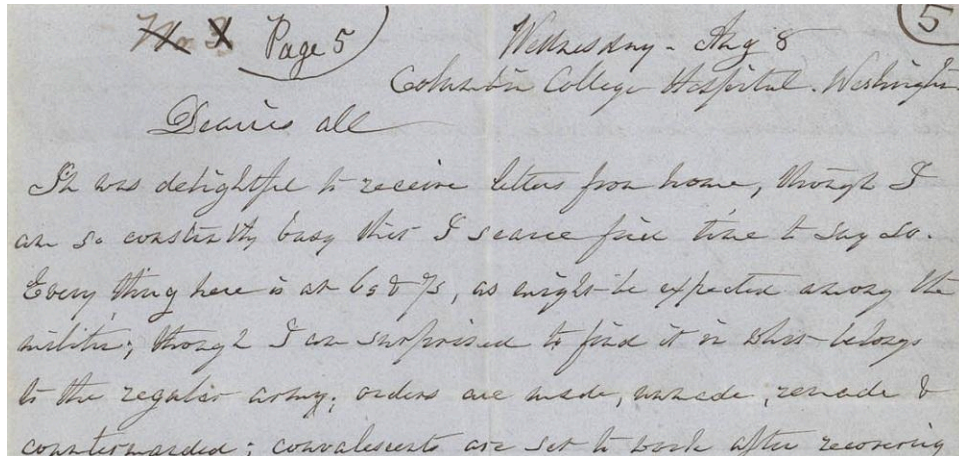 Page 5
5
Wednesday - Aug 8
Columbia College Hospital. Washington
Dearies all
It was delightful to receive letters from home, though I
am so constantly busy that I scarce find time to say so.
Every thing here is at 6s & 7s, as might be expected among the
militia; though I am surprised to find it in what belongs
to the regular army; orders are made, unmade, remade &
countermanded; convalescents are set to work after recovering